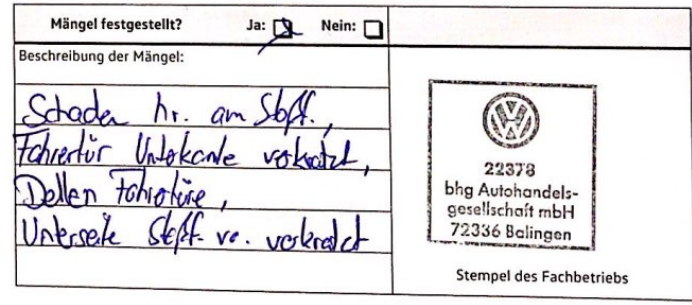 Mängel festgestellt? Ja: Nein:
Beschreibung der Mängel:
Schaden hr. am Stoßf.,
Fahrertür Unterkante verkratzt,
Dellen Fahrertüre,
Unterseite Stoßf. vo. verkratzt
22378
bhg Autohandels-
gesellschaft mbH
72336 Balingen
Stempel des Fachbetriebs